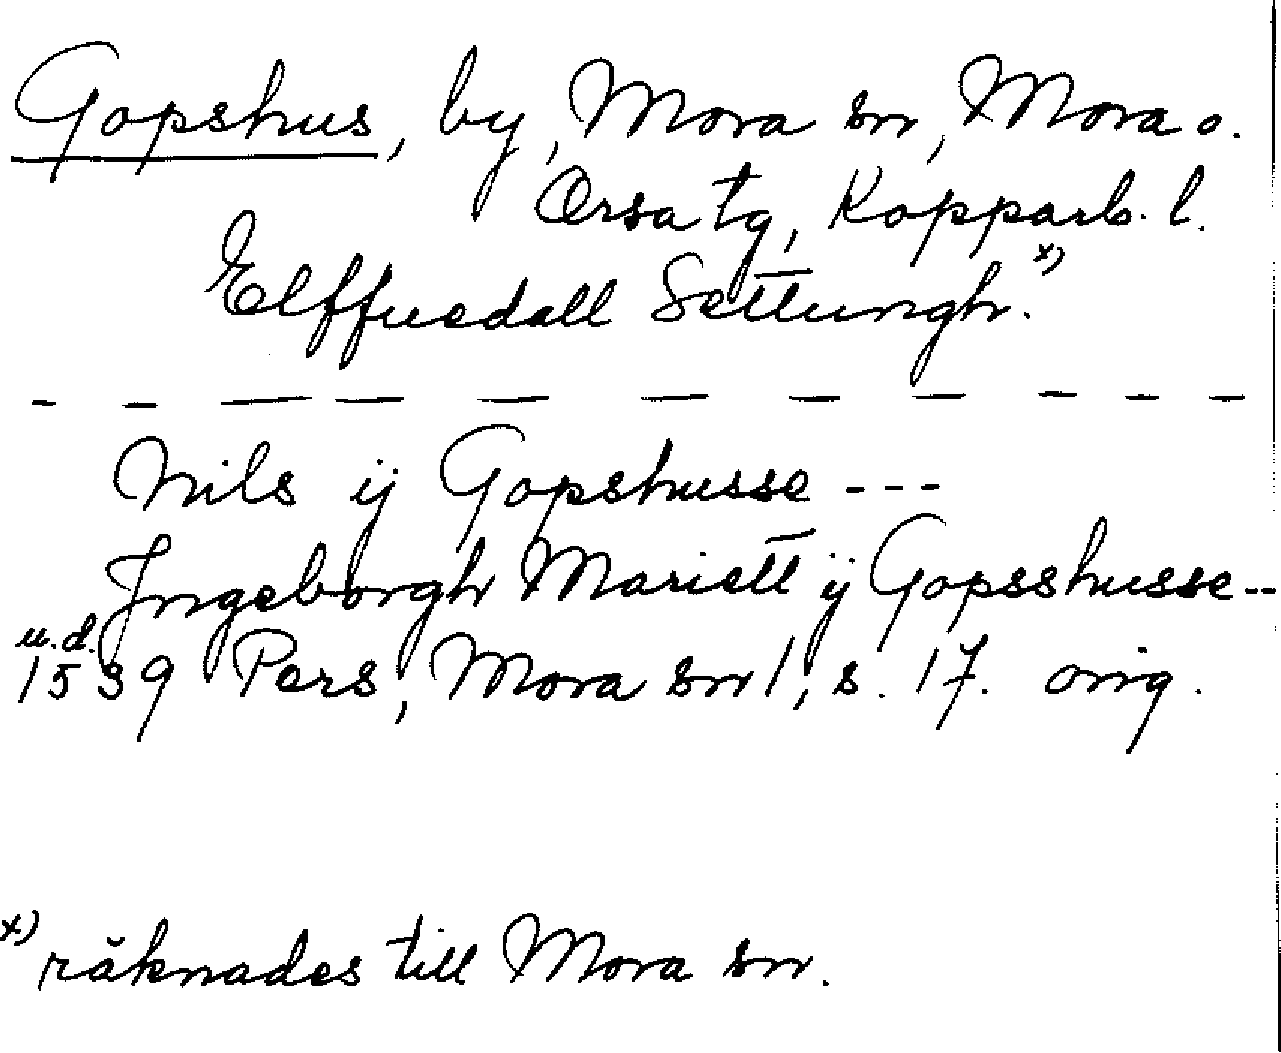 Gopshus, by, Mora sn, Mora o.
Orsa tg, Kopparb. l.
Elffuedall Settungh. x)
- - - - - - - - - - -
Nils ij Gopshusse ---
Jngeborgh Mariett ij Gopsshusse --
u.d.
1539 Pers, Mora sn 1, s. 17. orig.
x) räknades till Mora sn.